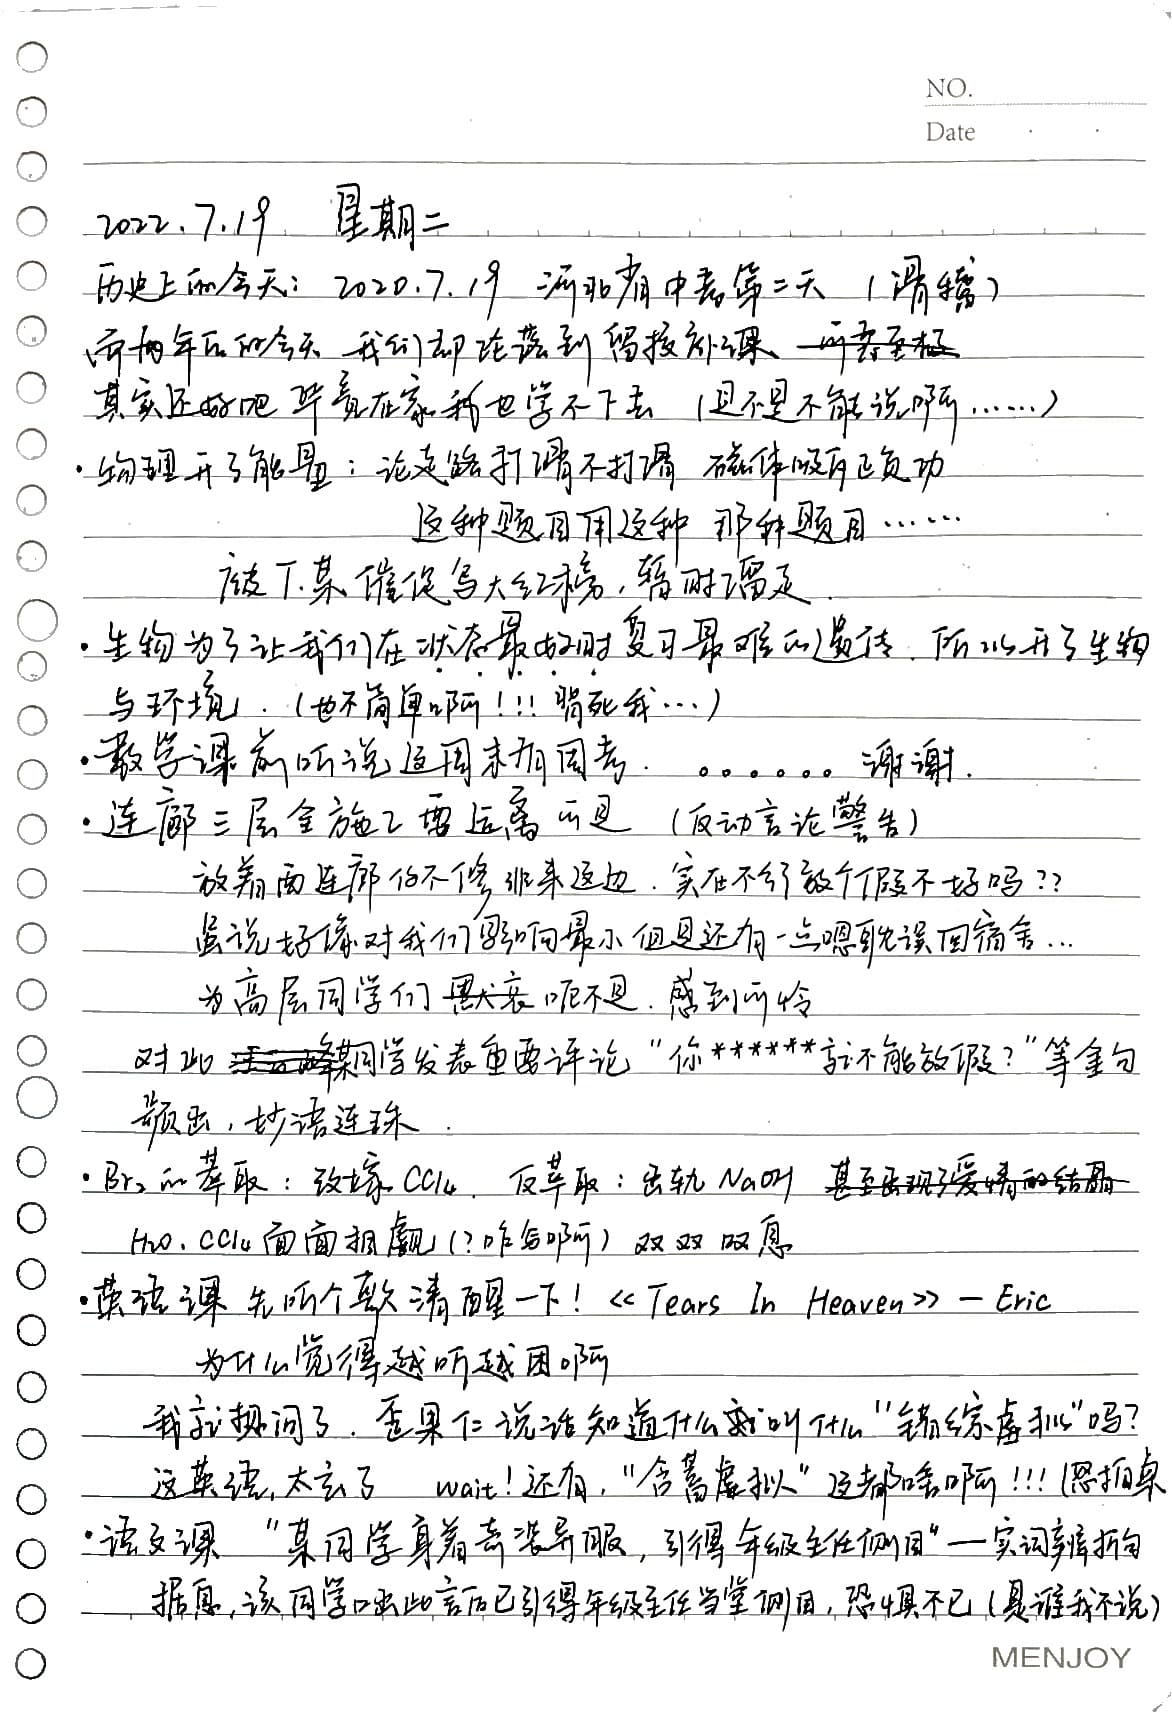 NO.
Date
2022.7.19 星期二
历史上的今天：2020.7.19 河北省中考第二天（滑稽）
而两年后的今天 我们却沦落到留校补课、可奈至极
其实还好吧 毕竟在家我也学不下去（且不是不能说啊……）
·物理开了能量：论走路打滑不打滑 磁体吸有正负功
这种题目用这种 那种题目……
被T.某催促写大红榜，暂时留足.
·生物为了让我们在状态最好时复习最难的遗传.所以开了生物
与环境.（也不简单啊!!!背死我…）
·数学课前听说这周末有周考. 。。。。。。谢谢.
·连廊三层全施工要远离 可是（反动言论警告）
放着西连廊你不修非来这边.实在不行放个假不好吗??
虽说好像对我们影响最小但是还有一点嗯耽误回宿舍…
为高层同学们默哀呃不是.感到可怜
对此 某同学发表重要评论“你******就不能放假?”等金句
频出，妙语连珠.
·Br₂的萃取：改嫁CCl₄. 反萃取：出轨NaOH 甚至出现了爱情的结晶
H₂O、CCl₄面面相觑(?咋写啊) 双双叹息
·英语课 先听个歌清醒一下! 《Tears In Heaven》— Eric
为什么觉得越听越困啊
我就想问了.歪果仁说话知道什么或叫什么“错综虚拟”吗?
这英语,太玄了 wait!还有,“含蓄虚拟”这都啥啊!!!(怒拍桌
·语文课 “某同学身着奇装异服,引得年级主任侧目”—实词辨析句
据悉,该同学出此言后已引得年级主任当堂侧目,恐惧不已(是谁我不说)
MENJOY